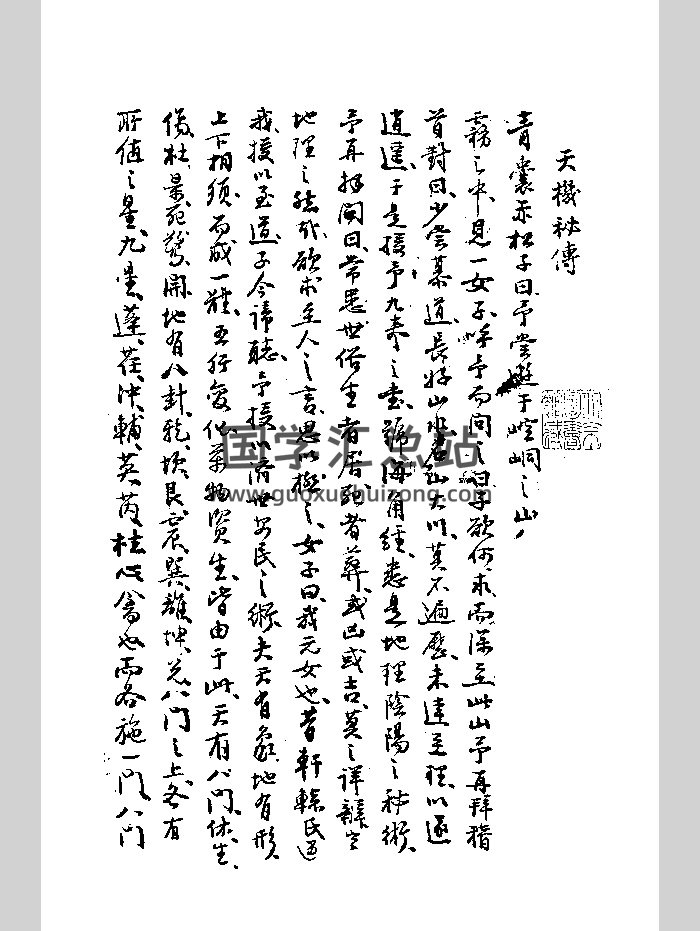 天機秘傳
青囊赤松子曰予嘗遊于崆峒之山
霧之中見一女子呼予而問之曰子欲何求而深至此山予再拜稽
首對曰少嘗慕道長好山水名山大川莫不遍歷未達至理以逐
逍遥于是授予九奏之書號海角經悉是地理陰陽之秘術
予再拜問曰常患世俗生者居死者葬或凶或吉莫之詳辭豈
地理之然哉欲求至人之言思以之女子曰我元女也昔軒轅氏遇
我授以至道子今諦聽予授以濟世安民之術夫天有象地有形
上下相須而成一體五行變化萬物資生皆由于此天有八門休生
傷杜景死驚開地有八卦乾坎艮震巽離坤兌八門之上各有
所值之星九星蓬任冲輔英芮柱心禽也而各施一門八門
国学汇总站
www.guoxuehuizong.com